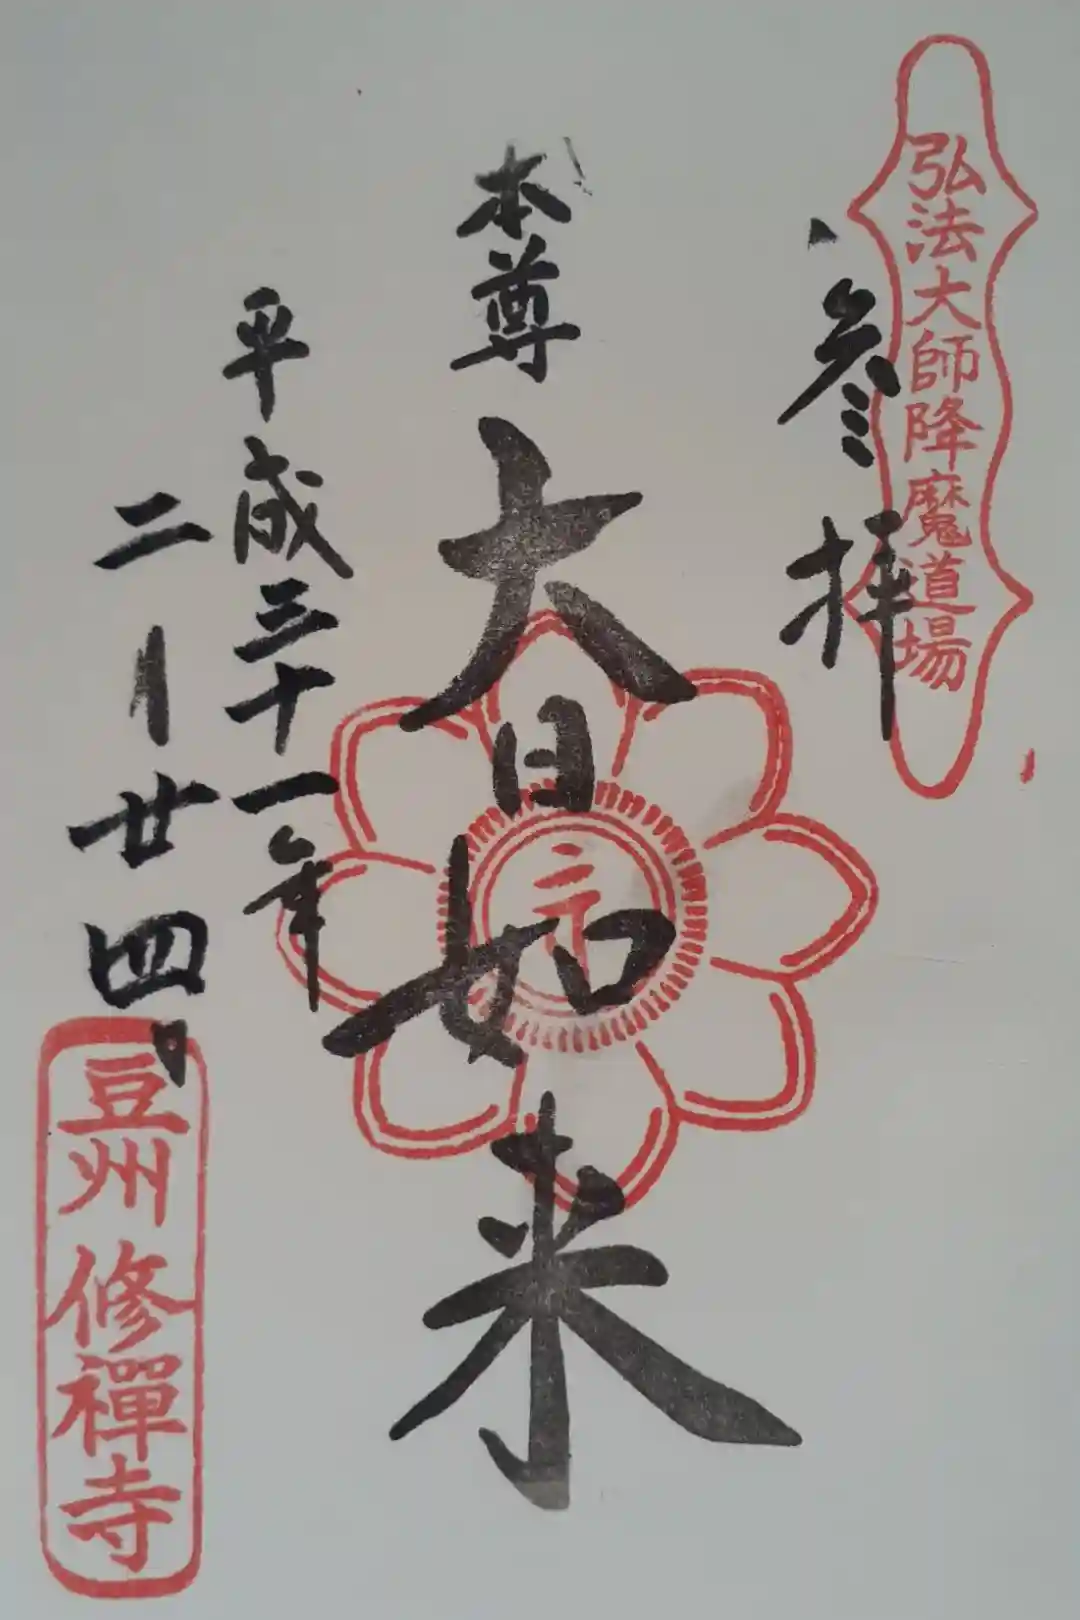 弘法大師降魔道場
参拝
本尊
大日如来
平成三十一年
二、廿四
豆州修禪寺